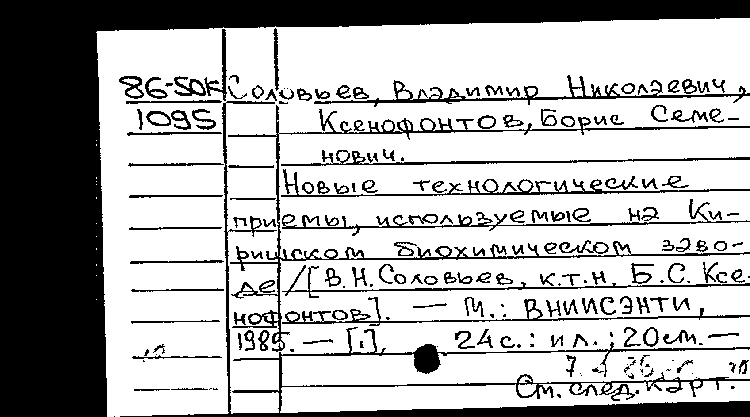 86-50к Соловьев, Владимир Николаевич,
1095 Ксенофонтов, Борис Семе-
нович.
Новые технологические
приемы, используемые на Ки-
ришском биохимическом заво-
де /[В.Н. Соловьев, к.т.н. Б.С. Ксе-
нофонтов]. — М.: ВНИИСЭНТИ,
1985. — [1], 24 с.: ил.; 20 см. —
См. след. карт.